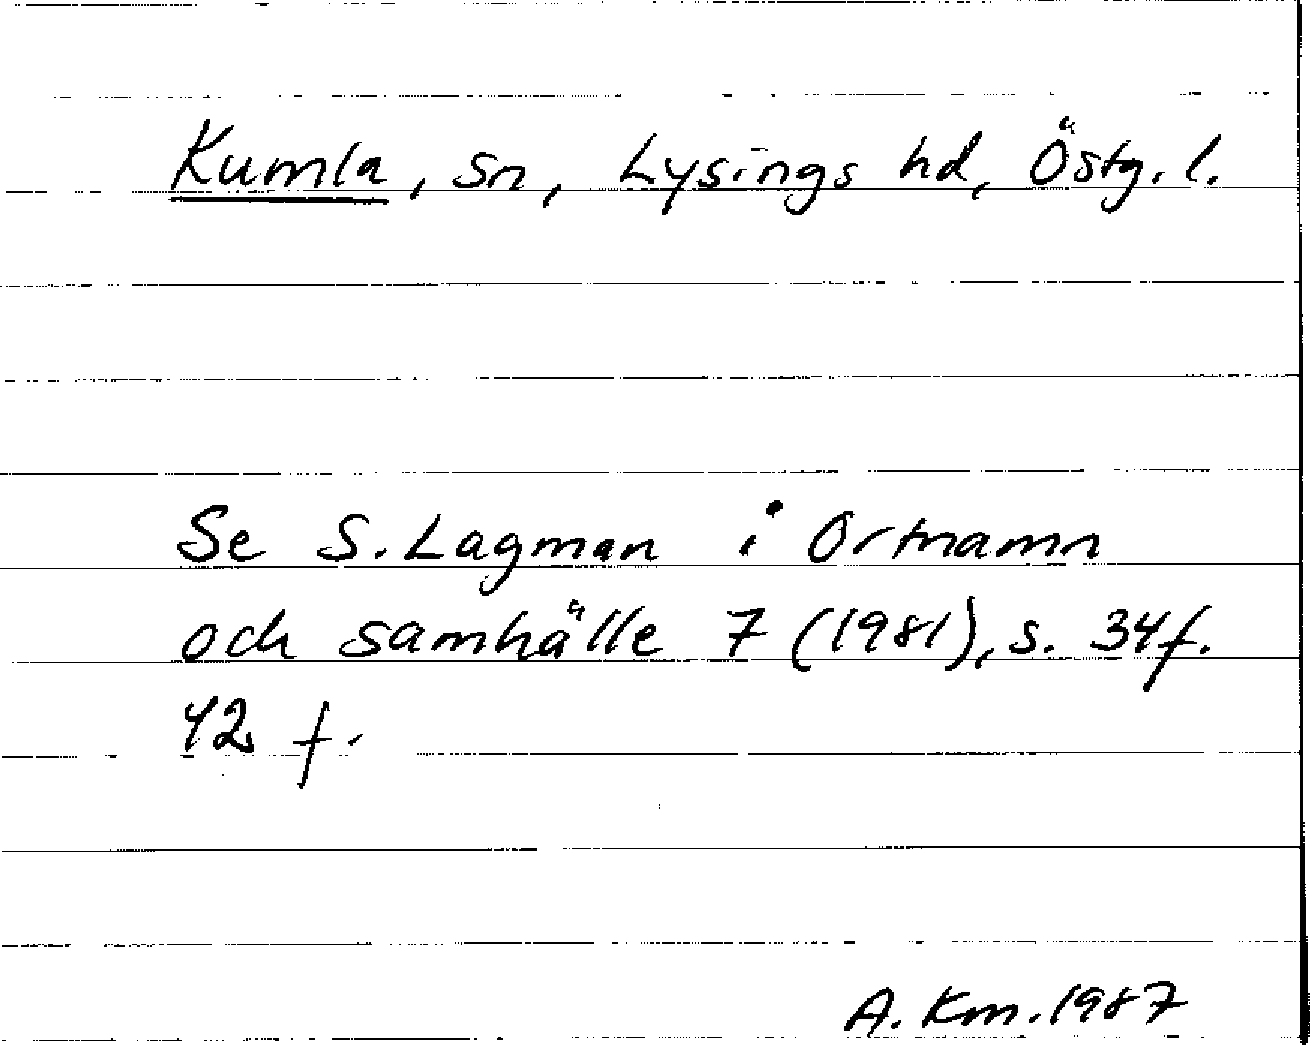 Kumla, sn, Lysings hd, Östg. l.
Se S. Lagman i Ortnamn
och samhälle 7 (1981), s. 34f.
42 f.
A. Km. 1987